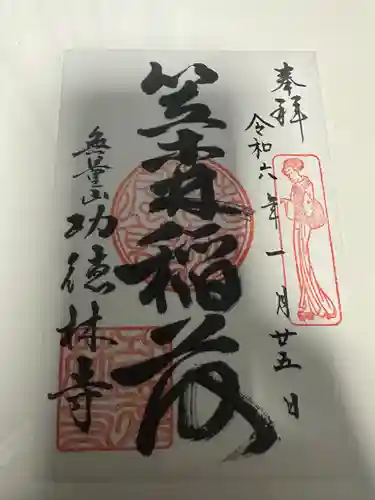 奉拝
令和六年一月廿五日
笠森稲荷
無量山功徳林寺